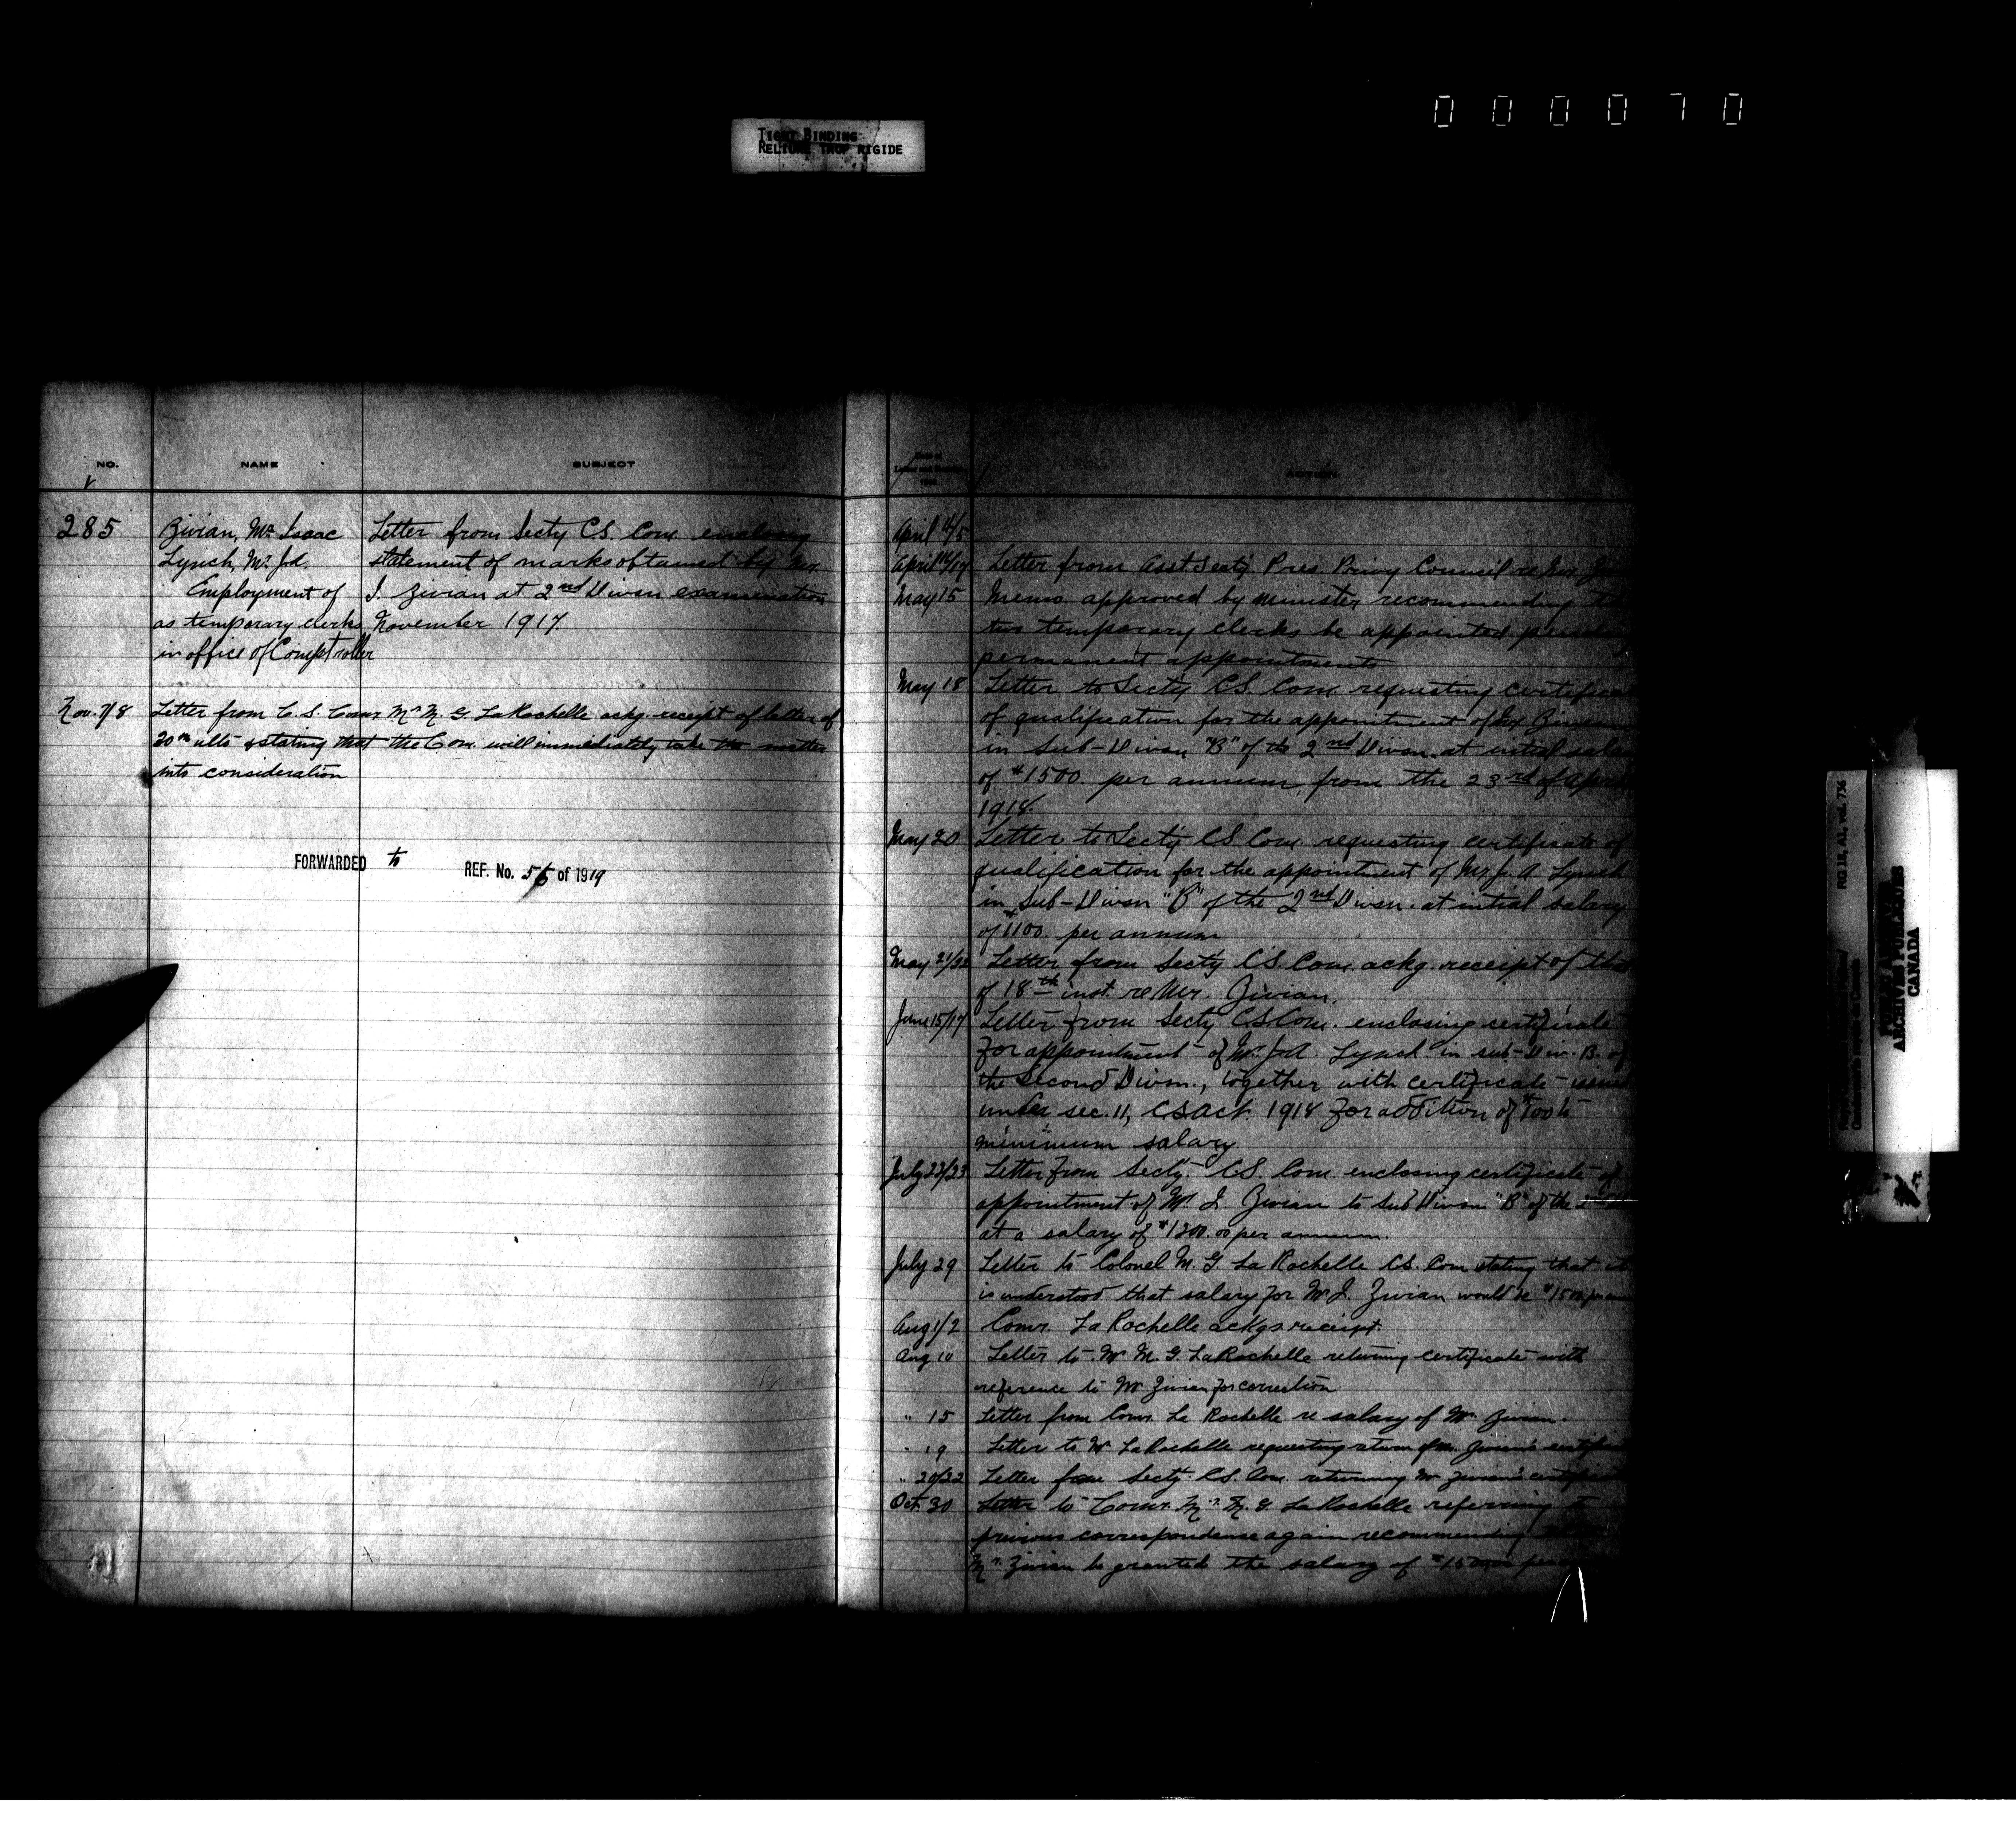 0 0 0 0 7 0
TIGHT BINDING
RELIURE TROP RIGIDE
NO.
NAME
SUBJECT
285
Zivian, Mr. Isaac
Lynch, Mr. J.A.
Employment of
as temporary clerks
in office of Comptroller
Letter from Secty C.S. Com. enclosing
statement of marks obtained by Mr.
I. Zivian at 2nd Divsn examination
November 1917.
Nov. 7/8
Letter from C. S. Comr. Mr. M. G. LaRochelle ackg. receipt of letter of
20th ulto & stating that the Com. will immediately take the matter
into consideration
FORWARDED to REF. No. 56 of 1919
ACTION
April 4/5
April 16/17 Letter from Asst Secty. Pres. Privy Council re Mr.
May 15 Memo approved by Minister recommending
two temporary clerks be appointed pending
permanent appointments
May 18 Letter to Secty C.S. Com. requesting
of qualification for the appointment of Mr. Zivian
in Sub-Divsn "B" of the 2nd Divsn. at initial
of $1500 per annum from the 23rd of April
1918.
May 20 Letter to Secty CS Com requesting certificate of
qualification for the appointment of Mr. J. A. Lynch
in Sub-Divsn "B" of the 2nd Divsn. at initial salary
of $1100. per annum
May 21/22 Letter from Secty C.S. Com. ackg. receipt of
of 18th inst. re Mr. Zivian.
June 15/17 Letter from Secty C.S. Com. enclosing certificate
for appointment of Mr. J.A. Lynch in sub-Div. B. of
the Second Divsn., together with certificate issued
under sec. 11, CS Act. 1918 for addition of to
minimum salary
July 22/23 Letter from Secty. C.S. Com. enclosing certificate of
appointment of Mr. I. Zivian to Sub Divsn "B" of the
at a salary of $1200.00 per annum.
July 29 Letter to Colonel M. G. La Rochelle C.S. Com stating that it
is understood that salary for Mr I. Zivian would be
Aug 1/2 Comr. La Rochelle ackgs receipt.
Aug 10 Letter to Mr M. G. LaRochelle returning certificate with
reference to Mr Zivian for correction
" 15 Letter from Comr. La Rochelle re salary of Mr. Zivian.
" 19 Letter to Mr LaRochelle requesting return of Mr. Zivian's
" 20/22 Letter from Secty. C.S. Com. returning Mr Zivian's
Oct. 30 Letter to Comr. Mr. M. G. LaRochelle referring to
previous correspondence again recommending
Mr. Zivian be granted the salary of
RG 18, A2, vol. 736
PUBLIC ARCHIVES
ARCHIVES PUBLIQUES
CANADA